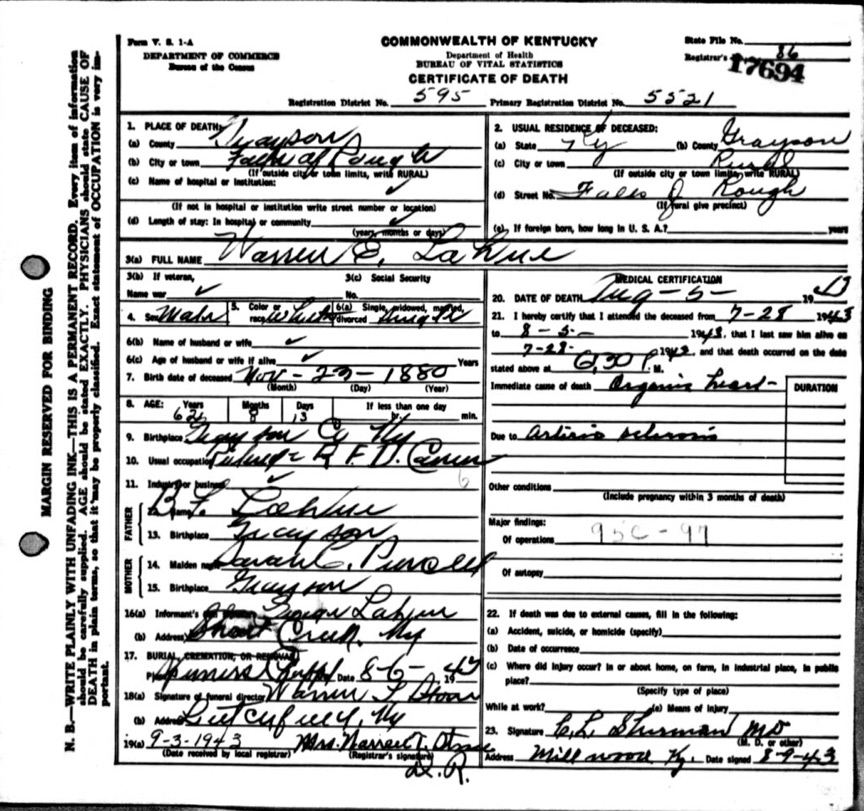 Form V. S. 1-A
DEPARTMENT OF COMMERCE
Bureau of the Census
COMMONWEALTH OF KENTUCKY
Department of Health
BUREAU OF VITAL STATISTICS
CERTIFICATE OF DEATH
State File No.
Registrar's 86
17694
Registration District No. 595 Primary Registration District No. 5521
MARGIN RESERVED FOR BINDING
N. B.—WRITE PLAINLY WITH UNFADING INK—THIS IS A PERMANENT RECORD. Every item of information
should be carefully supplied. AGE should be stated EXACTLY. PHYSICIANS should state CAUSE OF
DEATH in plain terms, so that it may be properly classified. Exact statement of OCCUPATION is very im-
portant.
1. PLACE OF DEATH:
(a) County Grayson
(b) City or town Falls of Rough
(If outside city or town limits, write RURAL)
(c) Name of hospital or institution:
(If not in hospital or institution write street number or location)
(d) Length of stay: In hospital or community
(years, months or days)
2. USUAL RESIDENCE OF DECEASED:
(a) State Ky (b) County Grayson
(c) City or town Rural
(If outside city or town limits, write RURAL)
(d) Street No. Falls of Rough
(If rural give precinct)
(e) If foreign born, how long in U. S. A.? years
3(a) FULL NAME Warren E. LaHue
3(b) If veteran,
Name war
3(c) Social Security
No.
4. Sex Male 5. Color or race White 6(a) Single, widowed, married, divorced Single
6(b) Name of husband or wife
6(c) Age of husband or wife if alive Years
7. Birth date of deceased Nov - 23 - 1880
(Month) (Day) (Year)
8. AGE: Years 62 Months 8 Days 13 If less than one day
hr. min.
9. Birthplace Grayson Co Ky
10. Usual occupation R. F. D. Carrier
11. Industry or business
FATHER
12. Name LaHue
13. Birthplace Grayson
MOTHER
14. Maiden name Sarah C. Purcell
15. Birthplace Grayson
16(a) Informant's LaHue
(b) Address Short Creek, Ky
17. BURIAL, CREMATION, OR REMOVAL
Place Chappel Date 8-6- 1943
18(a) Signature of funeral director Warren T.
(b) Address Ky
19(a) 9-3-1943 Mrs. Warren T.
(Date received by local registrar) (Registrar's signature)
D. R.
MEDICAL CERTIFICATION
20. DATE OF DEATH Aug - 5 - 1943
21. I hereby certify that I attended the deceased from 7-28 1943
to 8-5- 1943, that I last saw him alive on
7-28- 1943, and that death occurred on the date
stated above at 6:30 P. M.
Immediate cause of death Organic heart- DURATION
Due to Arterio sclerosis
Other conditions
(Include pregnancy within 3 months of death)
Major findings:
Of operations 95C-97
Of autopsy
22. If death was due to external causes, fill in the following:
(a) Accident, suicide, or homicide (specify)
(b) Date of occurrence
(c) Where did injury occur? In or about home, on farm, in industrial place, in public
place?
(Specify type of place)
While at work? (e) Means of injury
23. Signature C. L. Sherman MD
(M. D. or other)
Address Millwood Ky. Date signed 8-9-43